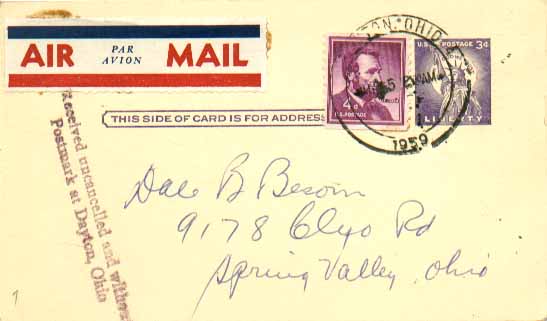 AIR PAR AVION MAIL
U.S. POSTAGE 3¢
LIBERTY
4¢
U.S. POSTAGE
OHIO
AM
1959
THIS SIDE OF CARD IS FOR ADDRESS
Received uncancelled and without
Postmark at Dayton, Ohio
Dale B Besom
9178 Clyo Rd
Spring Valley, Ohio